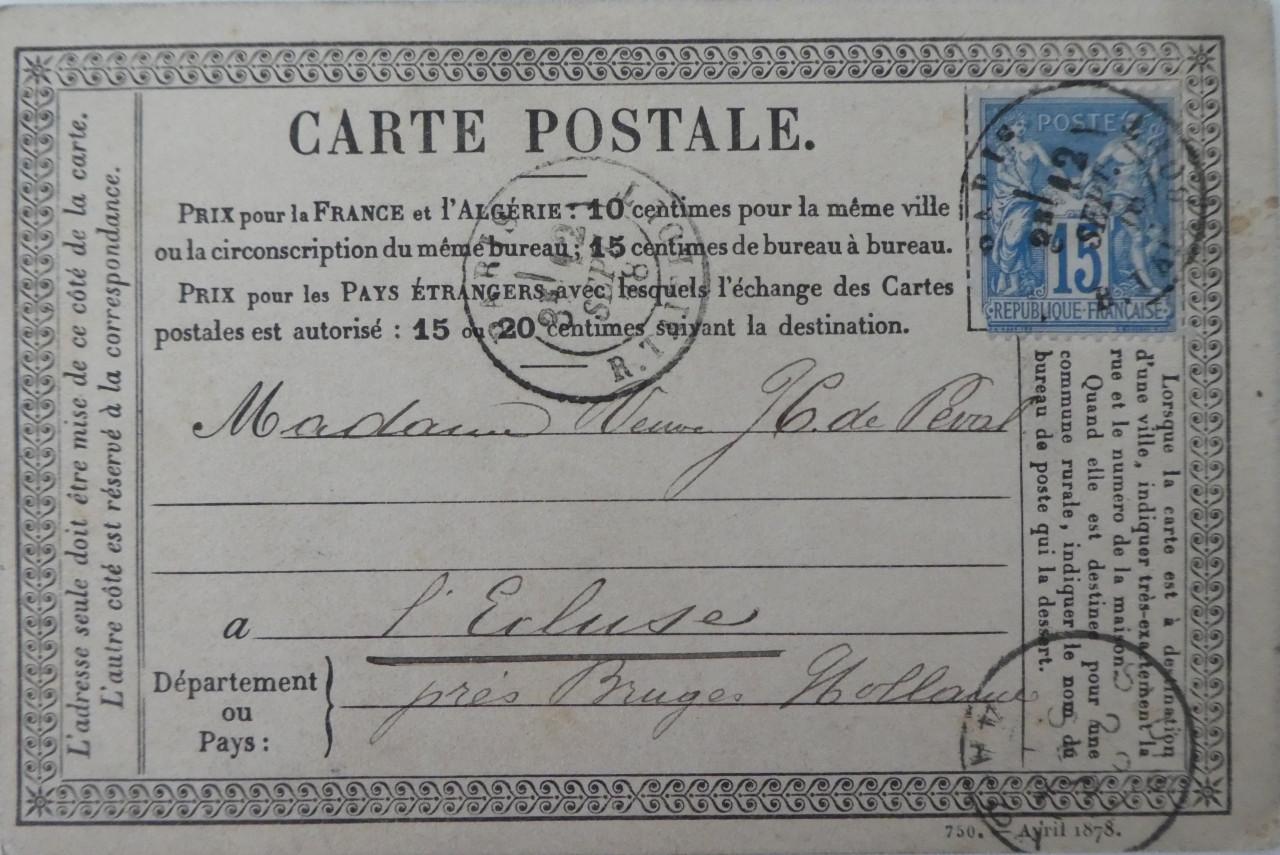 CARTE POSTALE.
PRIX pour la FRANCE et l'ALGÉRIE : 10 centimes pour la même ville
ou la circonscription du même bureau ; 15 centimes de bureau à bureau.
PRIX pour les PAYS ÉTRANGERS avec lesquels l'échange des Cartes
postales est autorisé : 15 ou 20 centimes suivant la destination.
Madame Veuve H. de
a l'Ecluse
Département
ou
Pays :
près Bruges Hollande
L'adresse seule doit être mise de ce côté de la carte.
L'autre côté est réservé à la correspondance.
POSTE
15
REPUBLIQUE FRANÇAISE
PARIS
12
SEPT.
78
PARIS
12
SEPT.
78
Lorsque la carte est à destination
d'une ville, indiquer très-exactement la
rue et le numéro de la maison.
Quand elle est destinée pour une
commune rurale, indiquer le nom du
bureau de poste qui la dessert.
750. — Avril 1878.